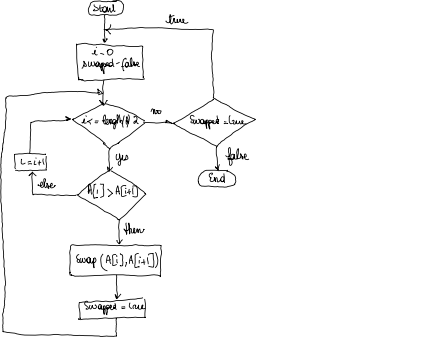 Start
true
i=0
swapped=false
i<=length(A)-2
no
swapped=true
yes
i=i+1
else
A[i]>A[i+1]
false
End
then
Swap (A[i],A[i+1])
Swapped = true